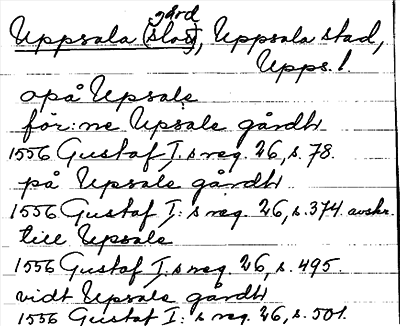 gård
Uppsala (slott), Uppsala stad,
Upps. l.
opå Upsale
för:ne Upsale gårdh
1556 Gustaf I:s reg. 26, s. 78.
på Upsale gårdh
1556 Gustaf I:s reg. 26, s. 374. avskr.
till Upsale
1556 Gustaf I:s reg. 26, s. 495.
vidt Upsale gårdh
1556 Gustaf I:s reg. 26, s. 501.